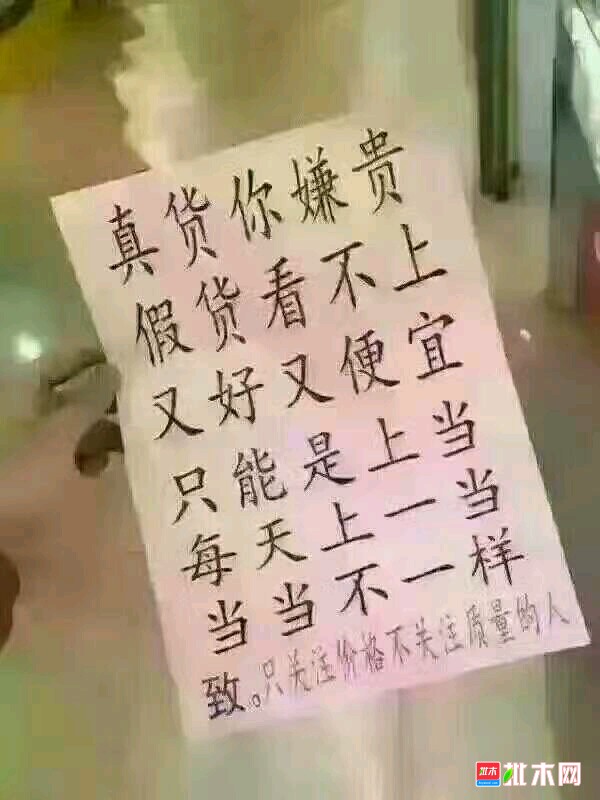 真货你嫌贵
假货看不上
又好又便宜
只能是上当
每天上一当
当当不一样
致。只关注价格不关注质量的人
批木
批木网